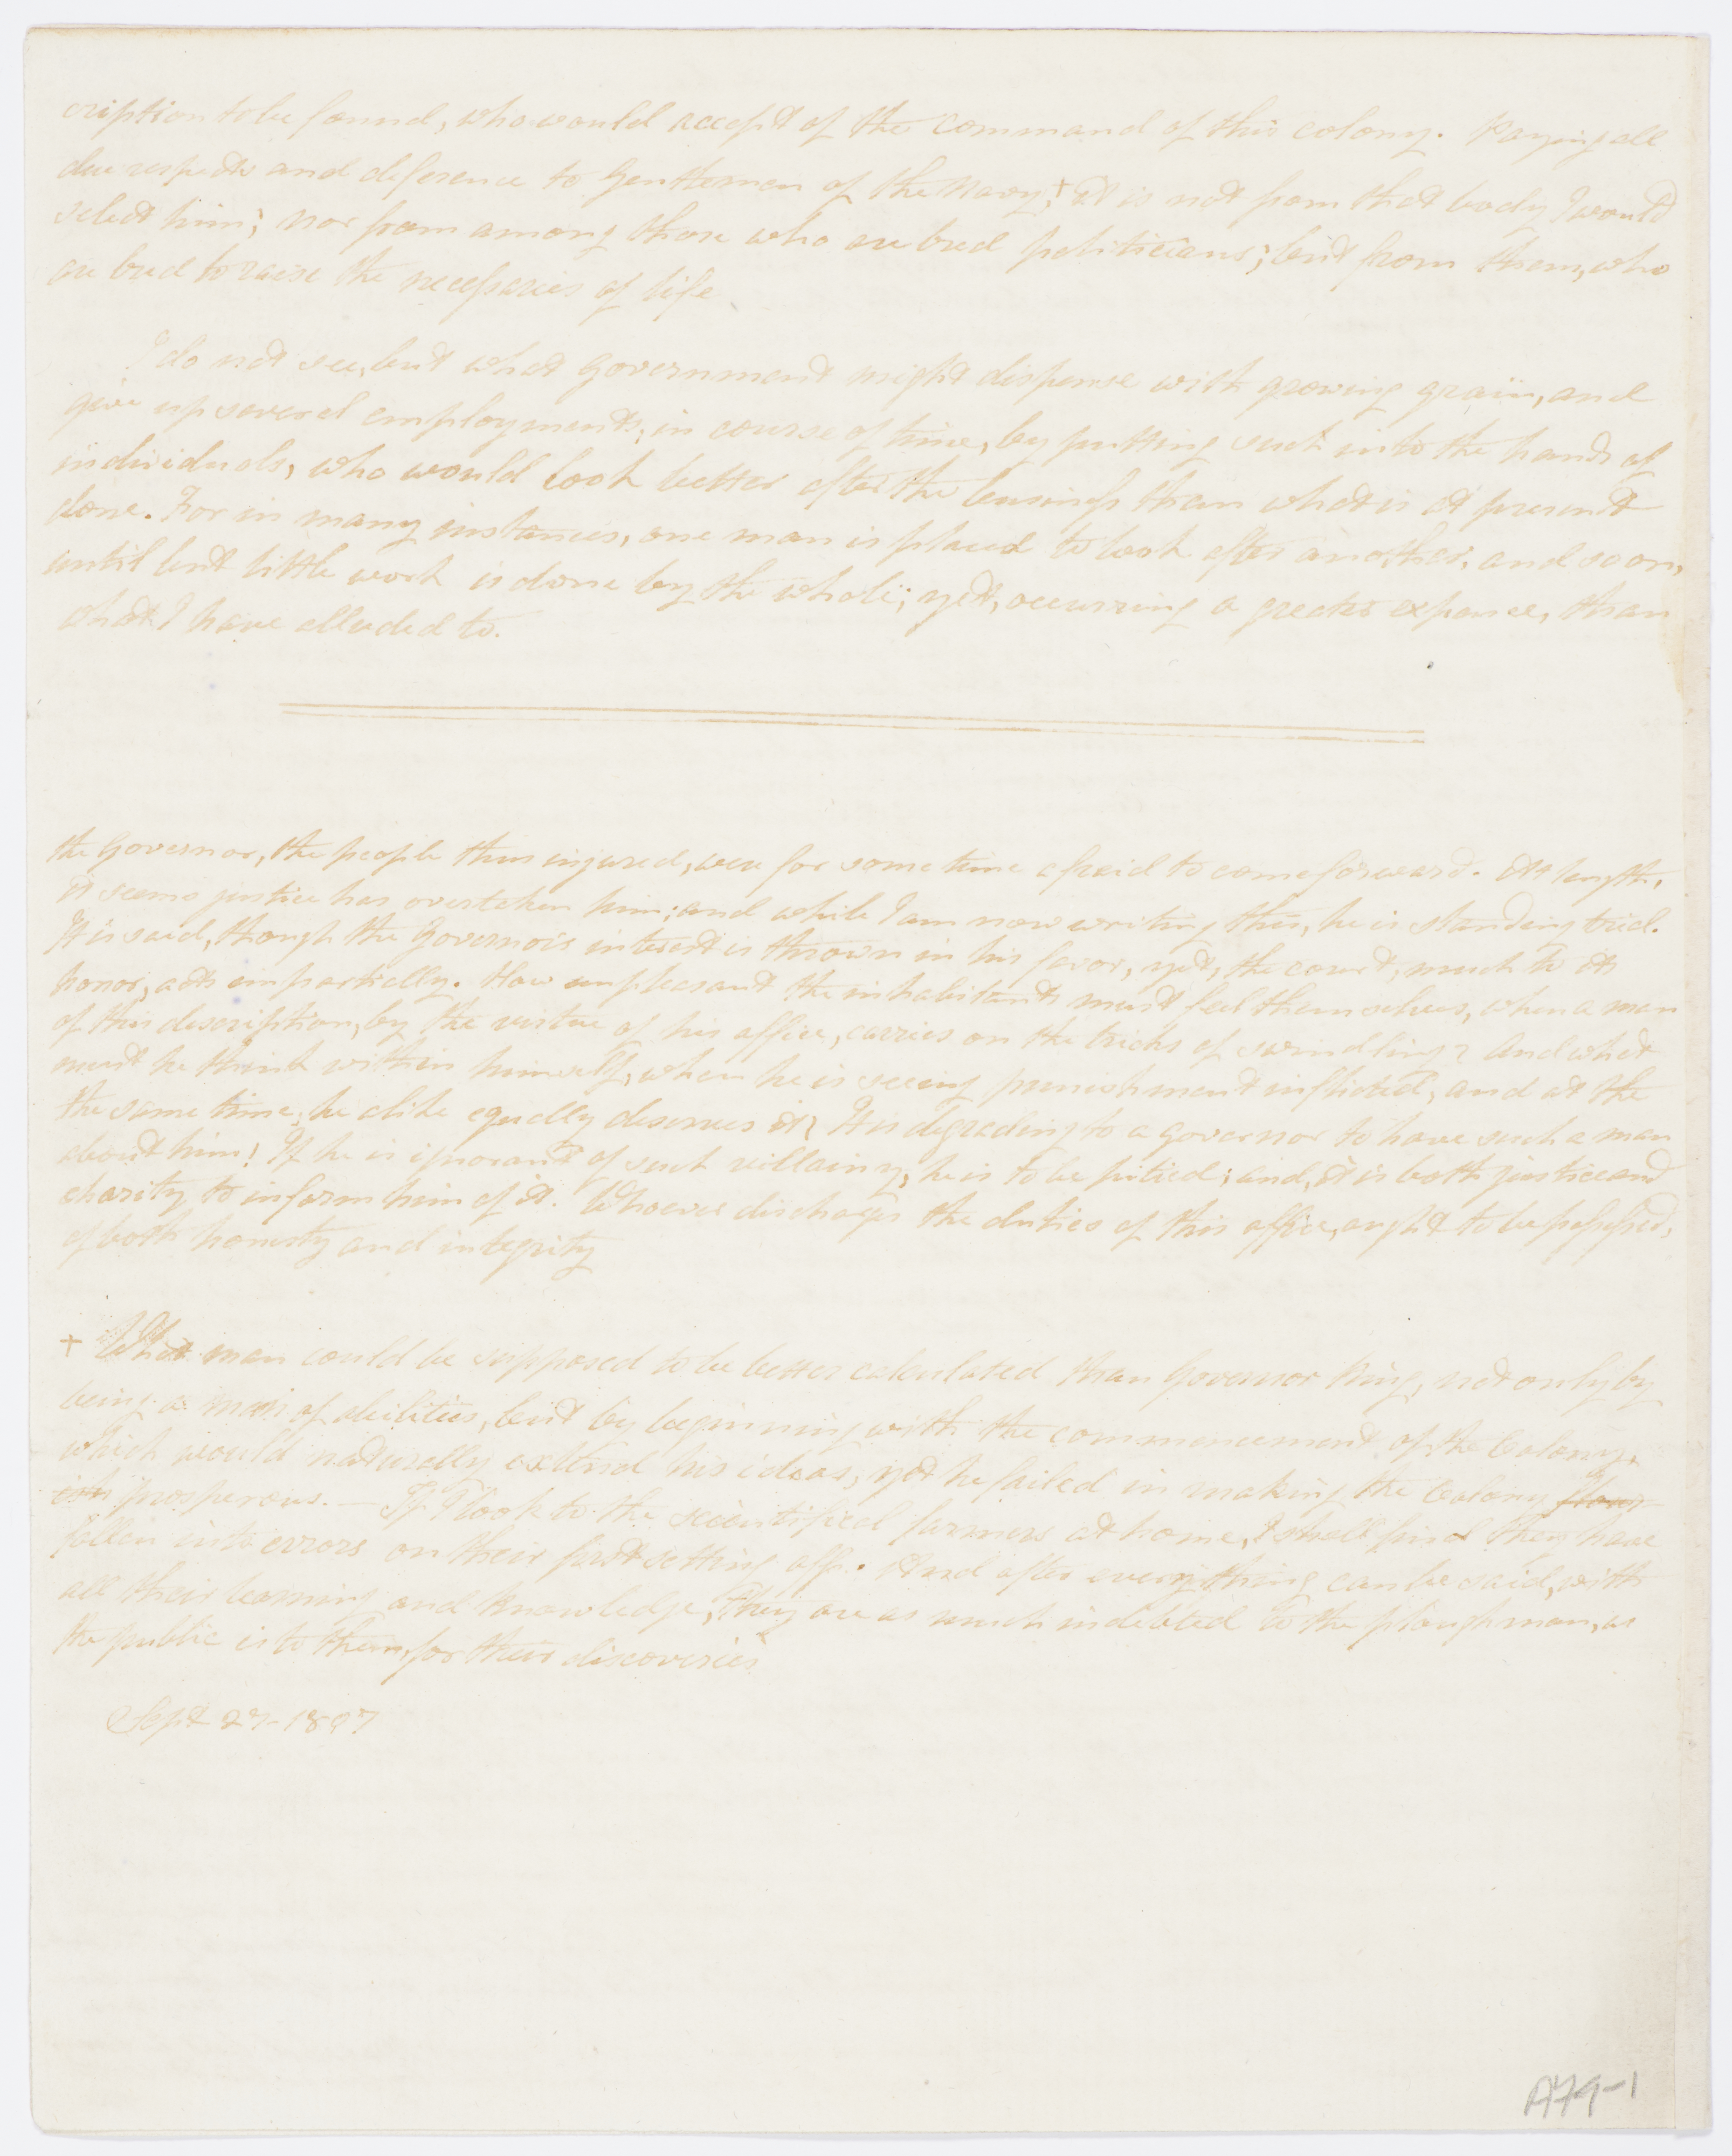 cription to be found, who would accept of the command of this colony. Paying all
due respects and deference to Gentlemen of the Navy,+ it is not from that body I would
select him; nor from among those who are bred politicians; but from them, who
are bred to raise the necessaries of life
I do not see, but what Government might dispense with growing grain, and
give up several employments, in course of time, by putting such into the hands of
individuals, who would look better after the business than what is at present
done. For in many instances, one man is placed to look after another, and so on,
until but little work is done by the whole; yet, occurring a greater expence, than
what I have alluded to.
the Governor, the people thus injured, were for some time afraid to come forward. At length,
it seems justice has overtaken him; and while I am now writing this, he is standing trial.
It is said, though the Governor's interest is thrown in his favor, yet, the court, much to its
honor, acts impartially. How unpleasant the inhabitants must feel themselves, when a man
of this description, by the virtue of his office, carries on the tricks of swindling? And what
must he think within himself, when he is seeing punishment inflicted, and at the
the same time, he alike equally deserves it? It is degrading to a governor to have such a man
about him! If he is ignorant of such villainy, he is to be pitied; and, it is both justice and
charity to inform him of it. Whoever discharges the duties of this office, ought to be possessed,
of both honesty and integrity
+ What man could be supposed to be better calculated than Governor King, not only by
being a man of abilities, but by beginning with the commencement of the Colony,
which would naturally extend his ideas, yet he failed in making the Colony
prosperous. — If I look to the scientified farmers at home, I shall find they have
fallen into errors on their first setting off. And after everything can be said, with
all their learning and knowledge, they are as much indebted to the ploughman, as
the public is to them, for their discoveries
Sept 27-1807
A79-1